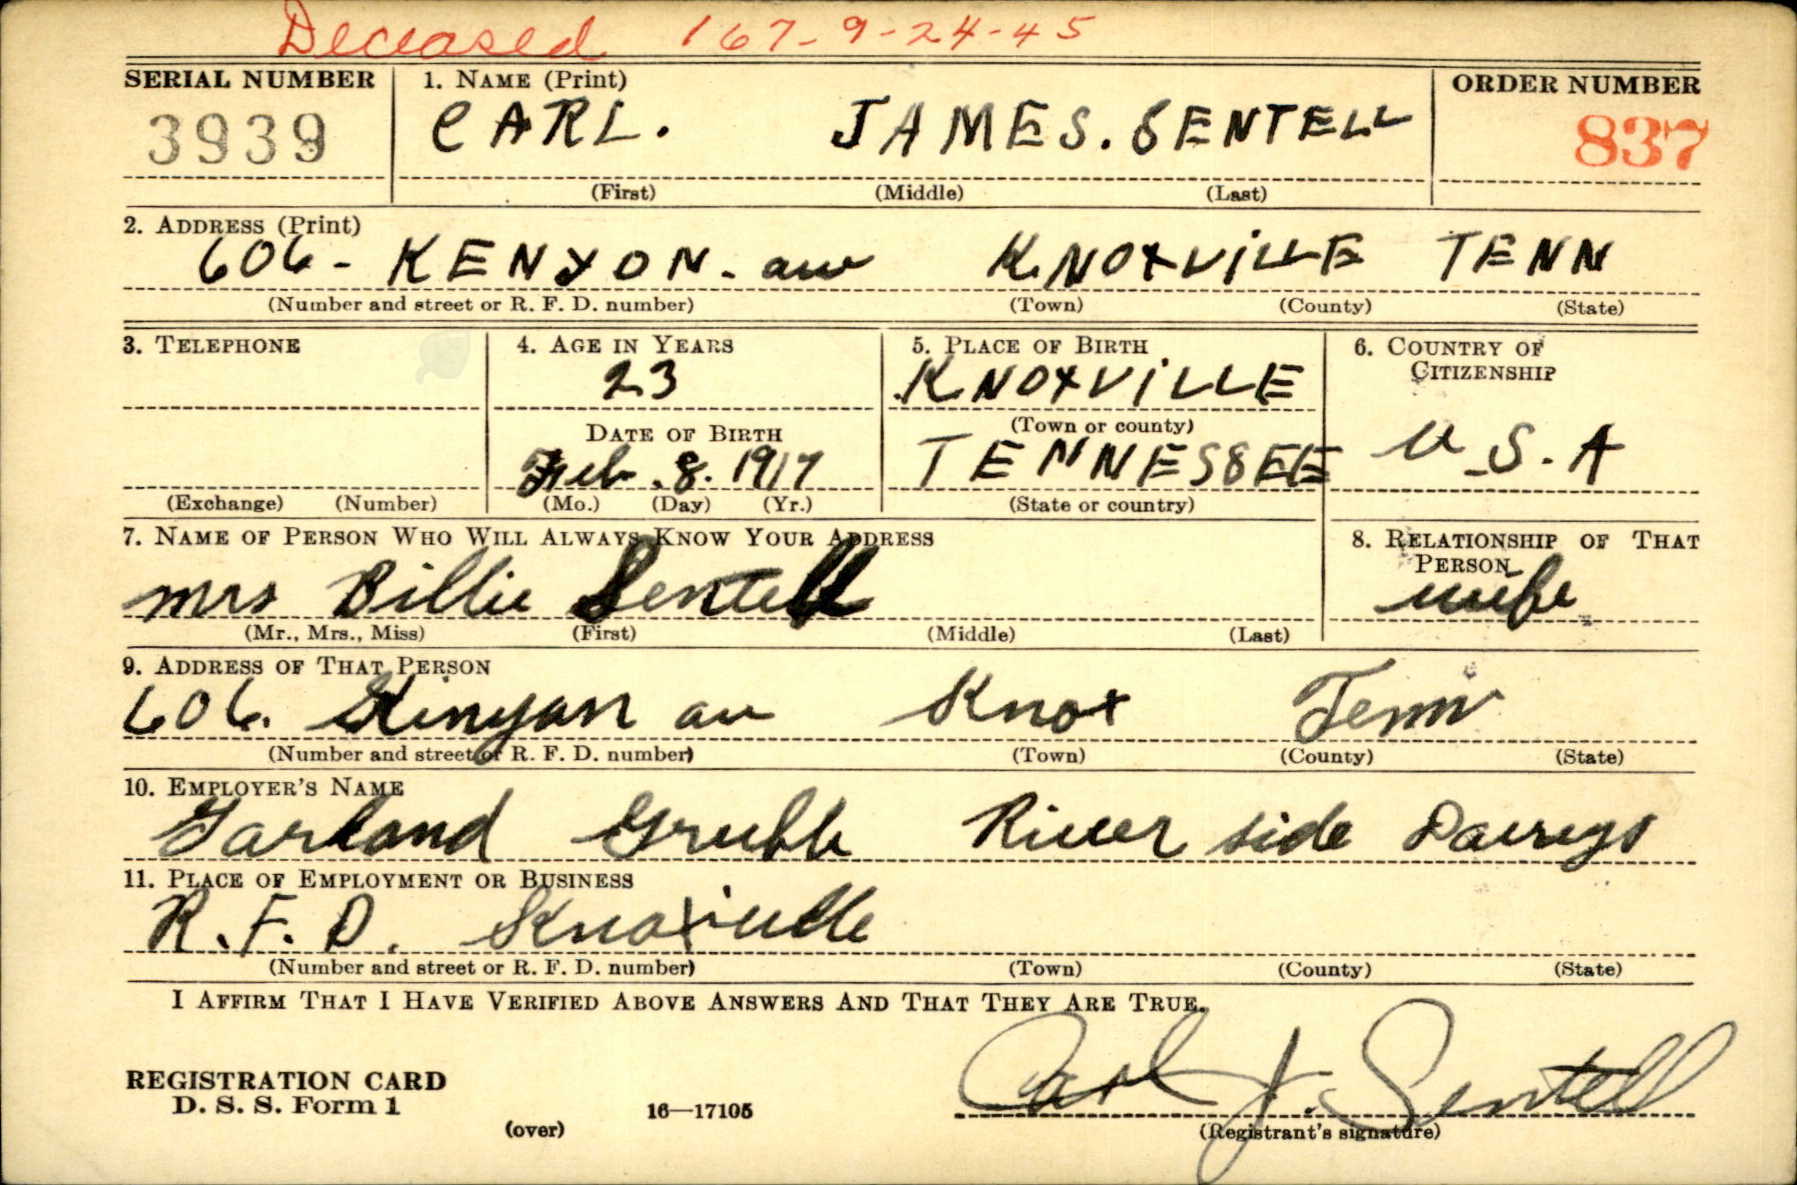 Deceased 167-9-24-45
SERIAL NUMBER 1. NAME (Print) ORDER NUMBER
3939 CARL. JAMES. SENTELL 837
(First) (Middle) (Last)
2. ADDRESS (Print)
606- KENYON. av KNOXVILLE TENN
(Number and street or R. F. D. number) (Town) (County) (State)
3. TELEPHONE 4. AGE IN YEARS 5. PLACE OF BIRTH 6. COUNTRY OF CITIZENSHIP
23 KNOXVILLE
DATE OF BIRTH (Town or county)
Feb. 8. 1917 TENNESSEE U.S.A
(Exchange) (Number) (Mo.) (Day) (Yr.) (State or country)
7. NAME OF PERSON WHO WILL ALWAYS KNOW YOUR ADDRESS 8. RELATIONSHIP OF THAT PERSON
Mrs Billie Sentell wife
(Mr., Mrs., Miss) (First) (Middle) (Last)
9. ADDRESS OF THAT PERSON
606. Kinyon av Knox Tenn
(Number and street or R. F. D. number) (Town) (County) (State)
10. EMPLOYER'S NAME
Garland Grubb River side Dairys
11. PLACE OF EMPLOYMENT OR BUSINESS
R.F.D. Knoxville
(Number and street or R. F. D. number) (Town) (County) (State)
I AFFIRM THAT I HAVE VERIFIED ABOVE ANSWERS AND THAT THEY ARE TRUE.
REGISTRATION CARD
D. S. S. Form 1 16—17105 Carl J. Sentell
(over) (Registrant's signature)